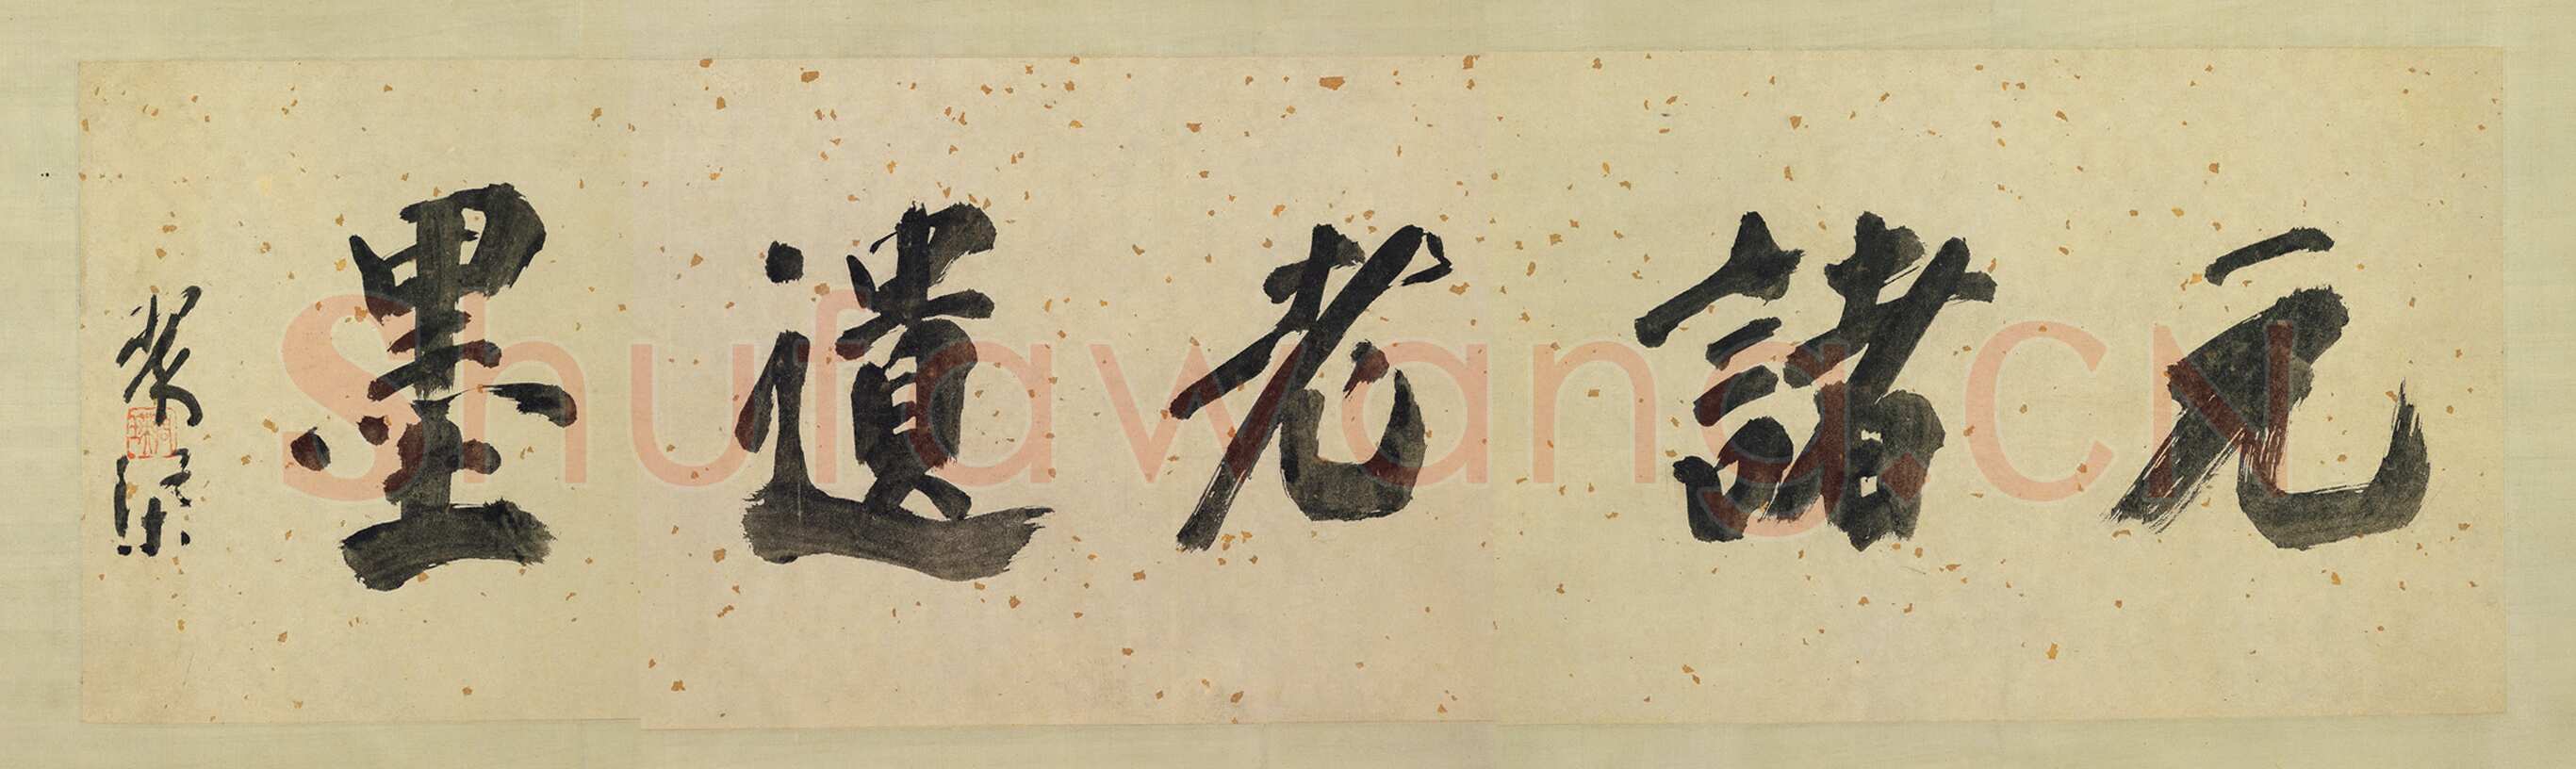 元諸老遺墨
Shufawang.CN